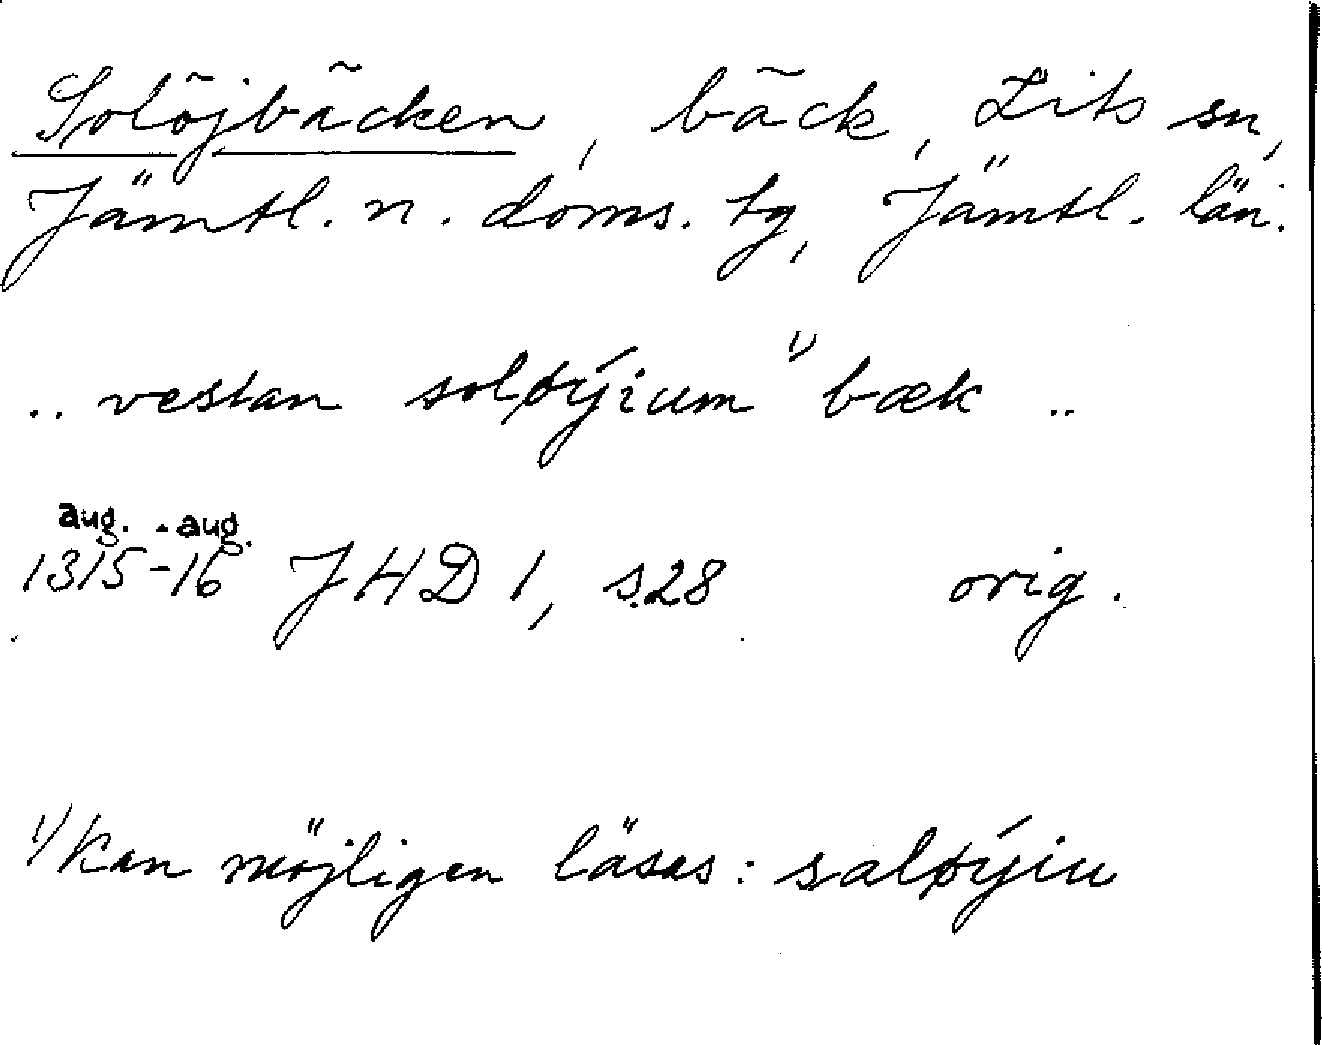 Solöjbäcken, bäck, Lits sn,
Jämtl. n. doms. tg, Jämtl. län.
.. vestan soløýium ¹⁾ bæk ..
aug. - aug.
1315-16 JHD 1, s.28 orig.
¹⁾ Kan möjligen läsas: saløýiu